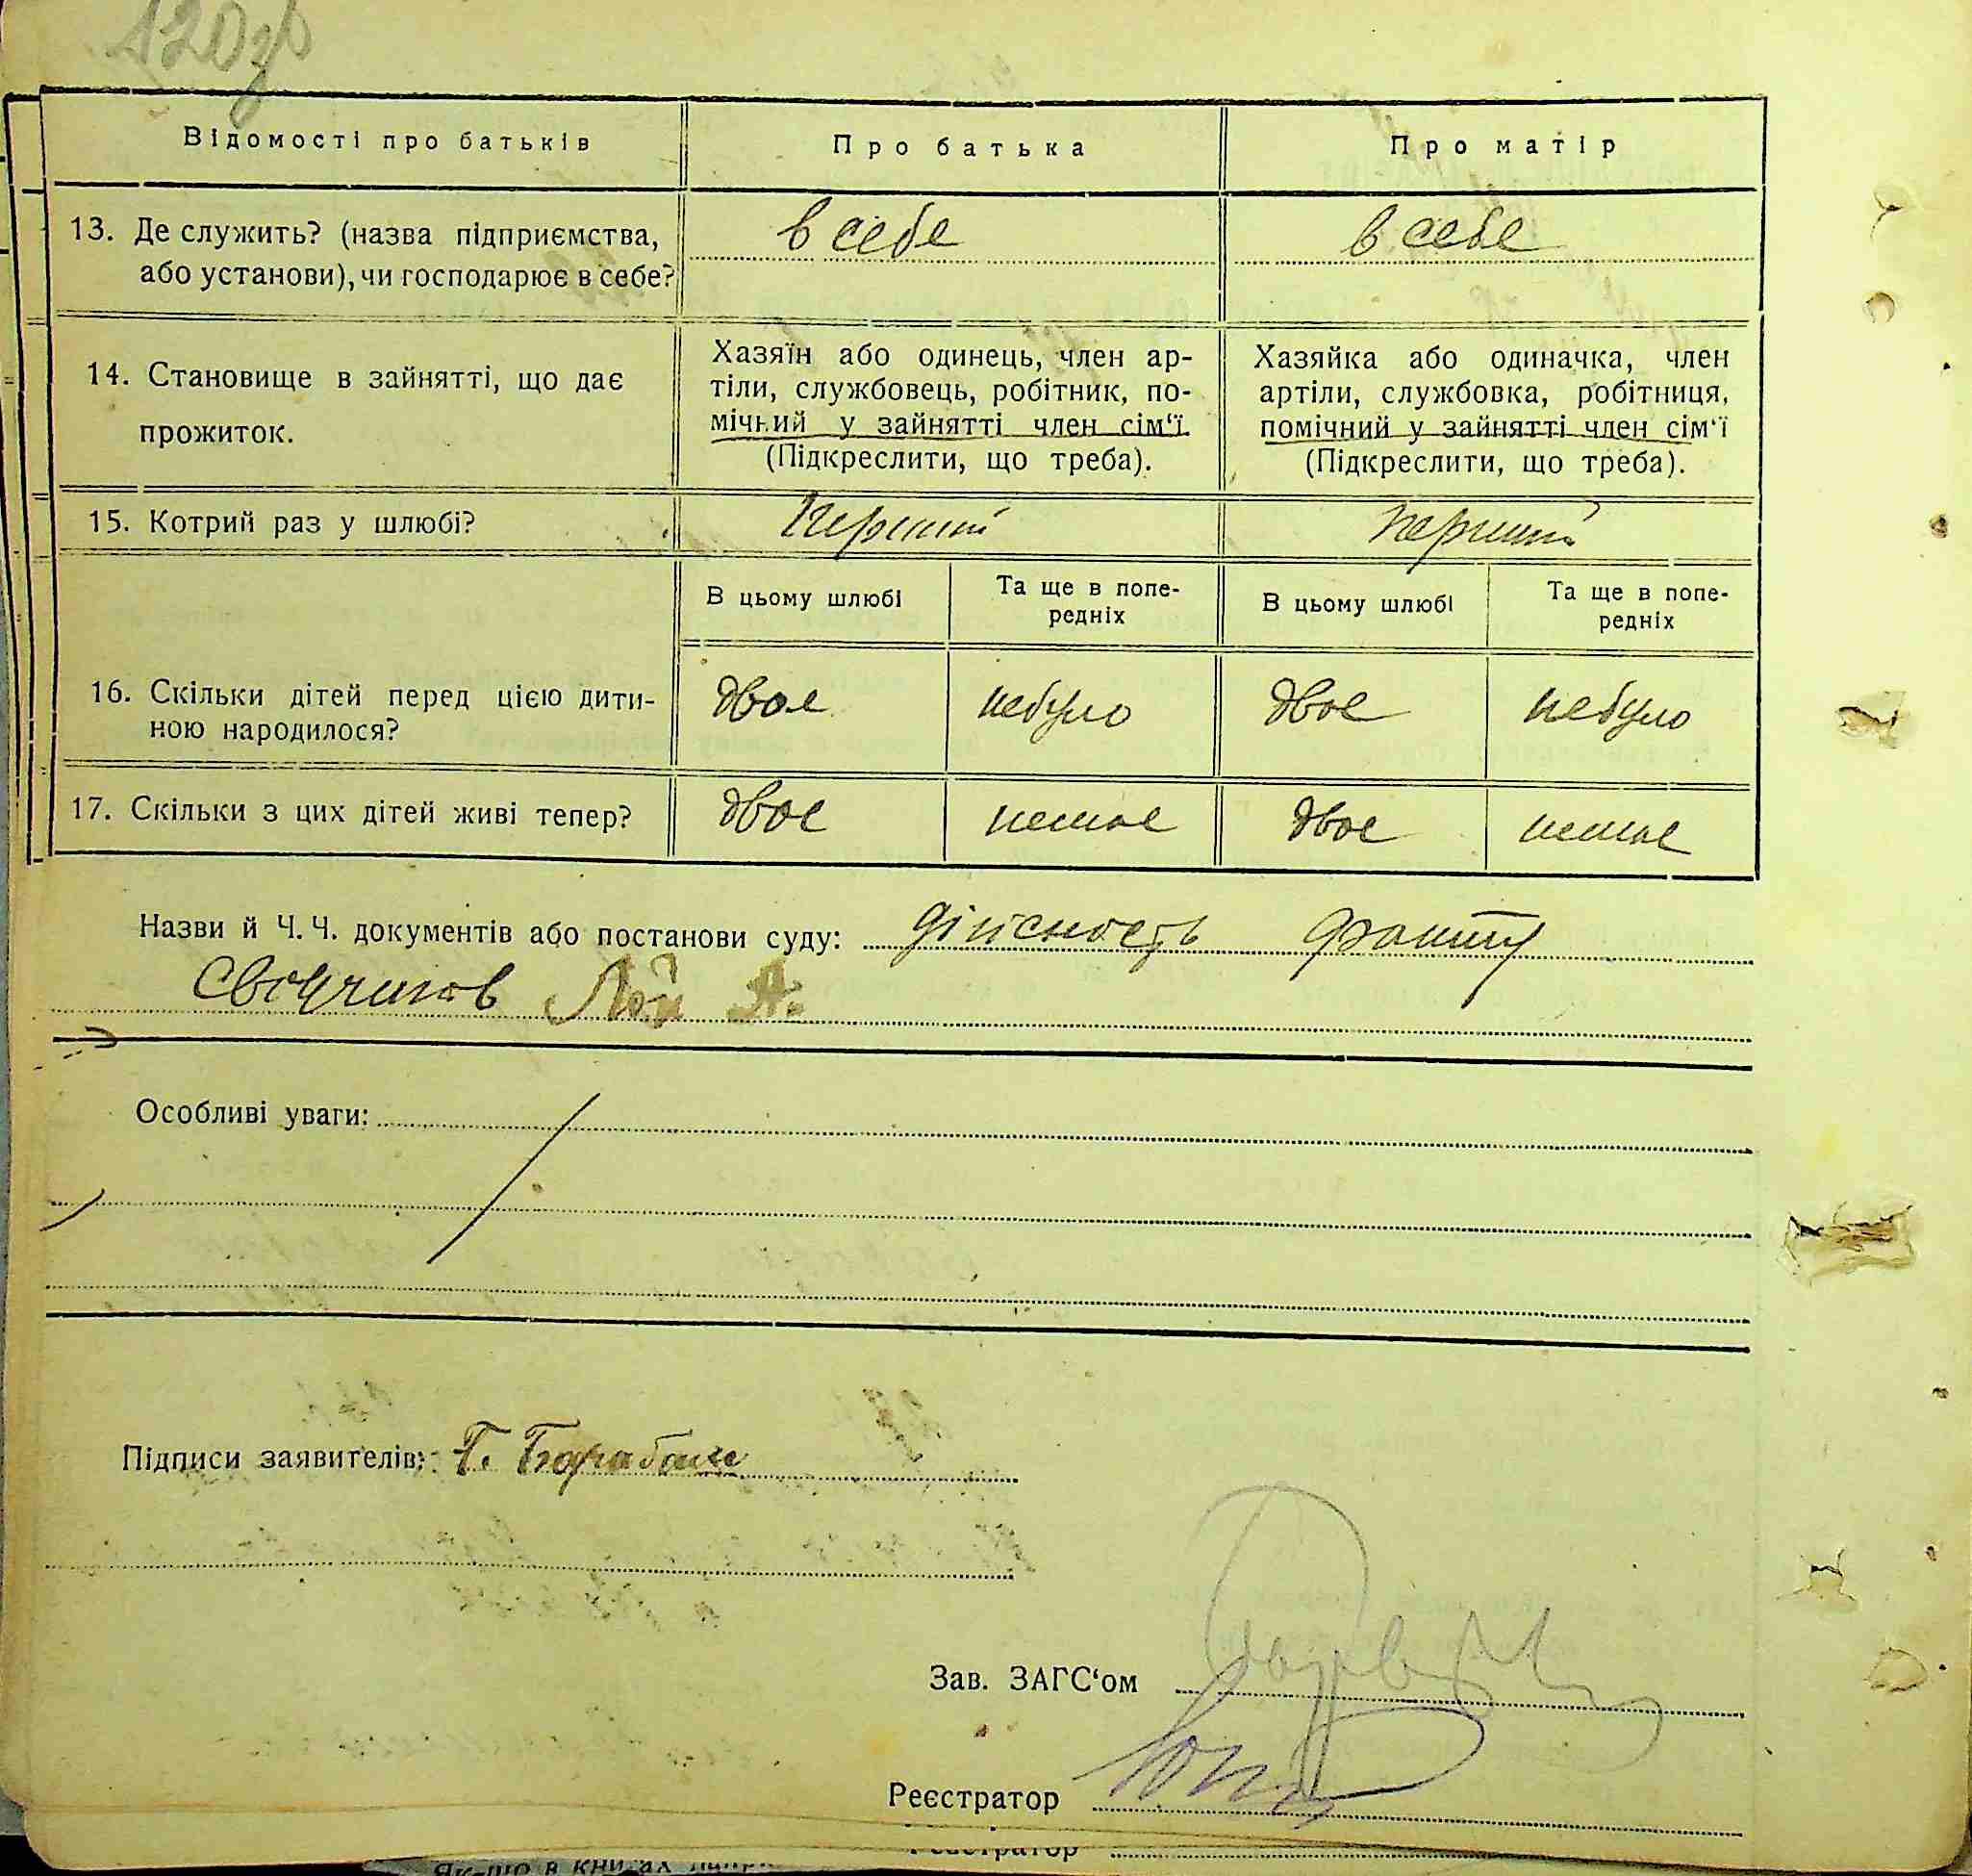 120зв
Відомості про батьків
Про батька
Про матір
13. Де служить? (назва підприємства,
або установи), чи господарює в себе?
в себе
в себе
14. Становище в зайнятті, що дає
прожиток.
Хазяїн або одинець, член ар-
тіли, службовець, робітник, по-
мічний у зайнятті член сім'ї
(Підкреслити, що треба).
Хазяйка або одиначка, член
артіли, службовка, робітниця,
помічний у зайнятті член сім'ї
(Підкреслити, що треба).
15. Котрий раз у шлюбі?
перший
перший
В цьому шлюбі
Та ще в попе-
редніх
В цьому шлюбі
Та ще в попе-
редніх
16. Скільки дітей перед цією дити-
ною народилося?
двое
небуло
двое
небуло
17. Скільки з цих дітей живі тепер?
двое
немае
двое
немае
Назви й Ч. Ч. документів або постанови суду: дійсность факту
Свідчитов Лой А.
Особливі уваги:
Підписи заявителів: Г. Барабаш
Зав. ЗАГС'ом
Реєстратор
Реєстратор
Як-що в книгах